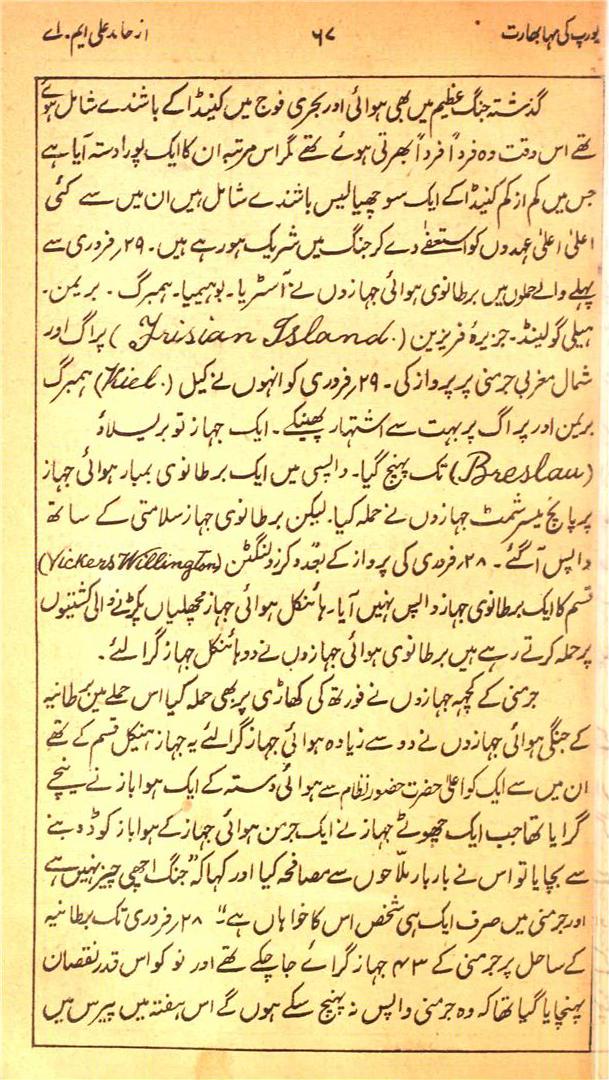 یورپ کی مہابھارت ۶۷ از حامد علی ایم۔ اے
گذشتہ جنگ عظیم میں بھی ہوائی اور بحری فوج میں کینڈا کے باشندے شامل ہوئے
تھے اس وقت وہ فرداً فرداً بھرتی ہوئے تھے مگر اس مرتبہ ان کا ایک پورا دستہ آیا ہے
جس میں کم از کم کینڈا کے ایک سو چھیالیس باشندے شامل ہیں ان میں سے کئی
اعلیٰ اعلیٰ عہدوں کو استعفے دے کر جنگ میں شریک ہو رہے ہیں۔ ۲۹؍فروری سے
پہلے والے حملوں میں برطانوی ہوائی جہازوں نے آسٹریا۔ بوہیمیا۔ ہمبرگ۔ بریمن۔
ہیلی گولینڈ۔ جزیرۂ فریزین (Frisian Island.) پراگ اور
شمال مغربی جرمنی پر پرواز کی۔ ۲۹؍فروری کو انہوں نے کیل (Kiel.) ہمبرگ
بریمن اور پراگ پر بہت سے اشتہار پھینکے۔ ایک جہاز تو بریسلاؤ
(Breslau) تک پہنچ گیا۔ واپسی میں ایک برطانوی بمبار ہوائی جہاز
پر پانچ میسرشمٹ جہازوں نے حملہ کیا۔ لیکن برطانوی جہاز سلامتی کے ساتھ
واپس آگئے۔ ۲۸؍فروری کی پرواز کے بعد وکرز ولنگٹن (Vickers Willington)
قسم کا ایک برطانوی جہاز واپس نہیں آیا۔ ہائنکل ہوائی جہاز مچھلیاں پکڑنے والی کشتیوں
پر حملہ کرتے رہے ہیں برطانوی ہوائی جہازوں نے دو ہائنکل جہاز گرا لئے۔
جرمنی کے کچھ جہازوں نے فورتھ کی کھاڑی پر بھی حملہ کیا اس حملے میں برطانیہ
کے جنگی ہوائی جہازوں نے دو سے زیادہ ہوائی جہاز گرا لئے یہ جہاز ہنیکل قسم کے تھے
ان میں سے ایک کو اعلیٰ حضرت حضور نظام سے ہوائی دستہ کے ایک ہوا باز نے نیچے
گرایا تھا جب ایک چھوٹے جہاز نے ایک جرمن ہوائی جہاز کے ہوا باز کو ڈوبنے
سے بچایا تو اس نے بار بار ملاحوں سے مصافحہ کیا اور کہا کہ "جنگ اچھی چیز نہیں ہے
اور جرمنی میں صرف ایک ہی شخص اس کا خواہاں ہے" ۲۸؍فروری تک برطانیہ
کے ساحل پر جرمنی کے ۴۳ جہاز گرائے جا چکے تھے اور نو کو اس قدر نقصان
پہنچایا گیا تھا کہ وہ جرمنی واپس نہ پہنچ سکے ہوں گے اس ہفتہ میں پیرس میں